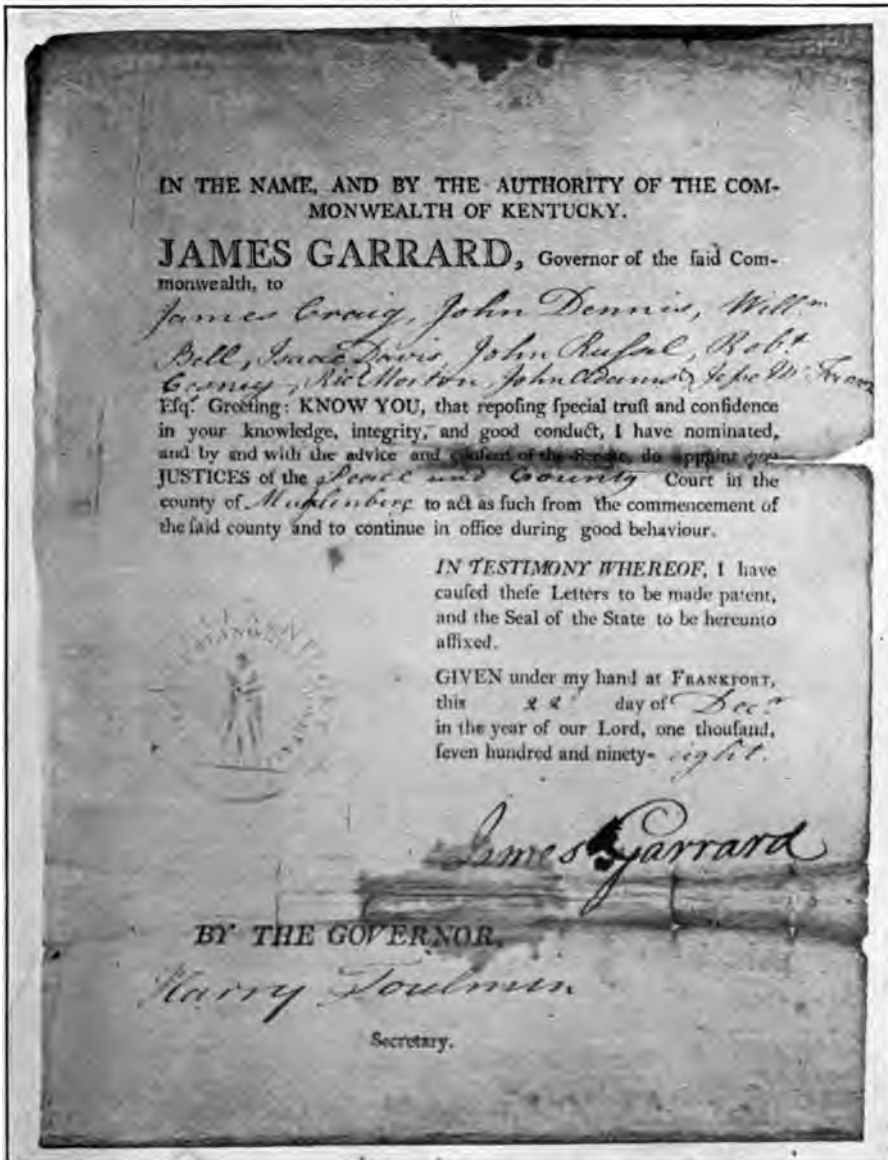 IN THE NAME, AND BY THE AUTHORITY OF THE COM-
MONWEALTH OF KENTUCKY.
JAMES GARRARD, Governor of the ſaid Com-
monwealth, to
James Craig, John Dennis, Will.m
Bell, Isaac Davis, John Ruſsal, Rob.t
Ric Morton, John Adams &
Eſqr. Greeting: KNOW YOU, that repoſing ſpecial truſt and confidence
in your knowledge, integrity, and good conduct, I have nominated,
and by and with the advice and conſent of the Senate, do appoint you
JUSTICES of the Peace and County Court in the
county of Muhlenberg to act as ſuch from the commencement of
the ſaid county and to continue in office during good behaviour.
IN TESTIMONY WHEREOF, I have
cauſed theſe Letters to be made patent,
and the Seal of the State to be hereunto
affixed.
GIVEN under my hand at FRANKFORT,
this 22d day of Decr
in the year of our Lord, one thouſand,
ſeven hundred and ninety- eight.
James Garrard
BY THE GOVERNOR,
Harry Toulmin
Secretary.